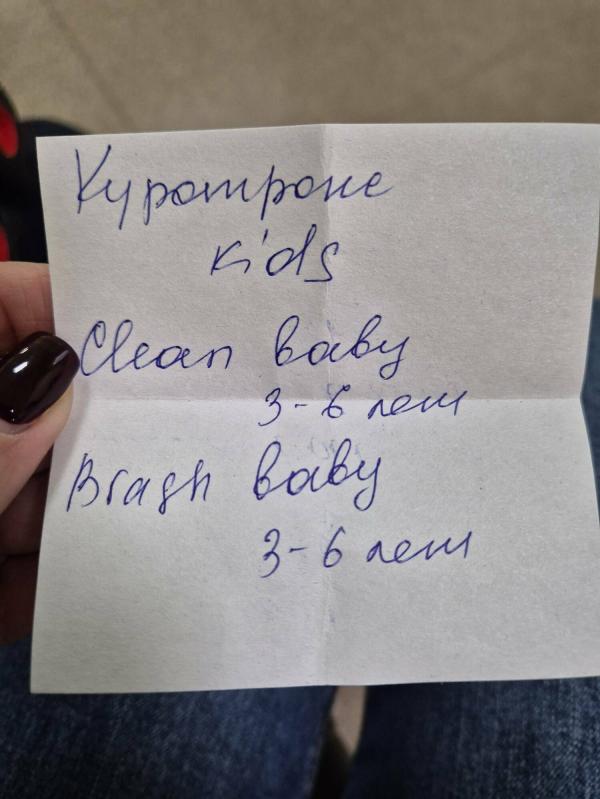 Куропроке
kids
Clean baby
3-6 лет
Brash baby
3-6 лет